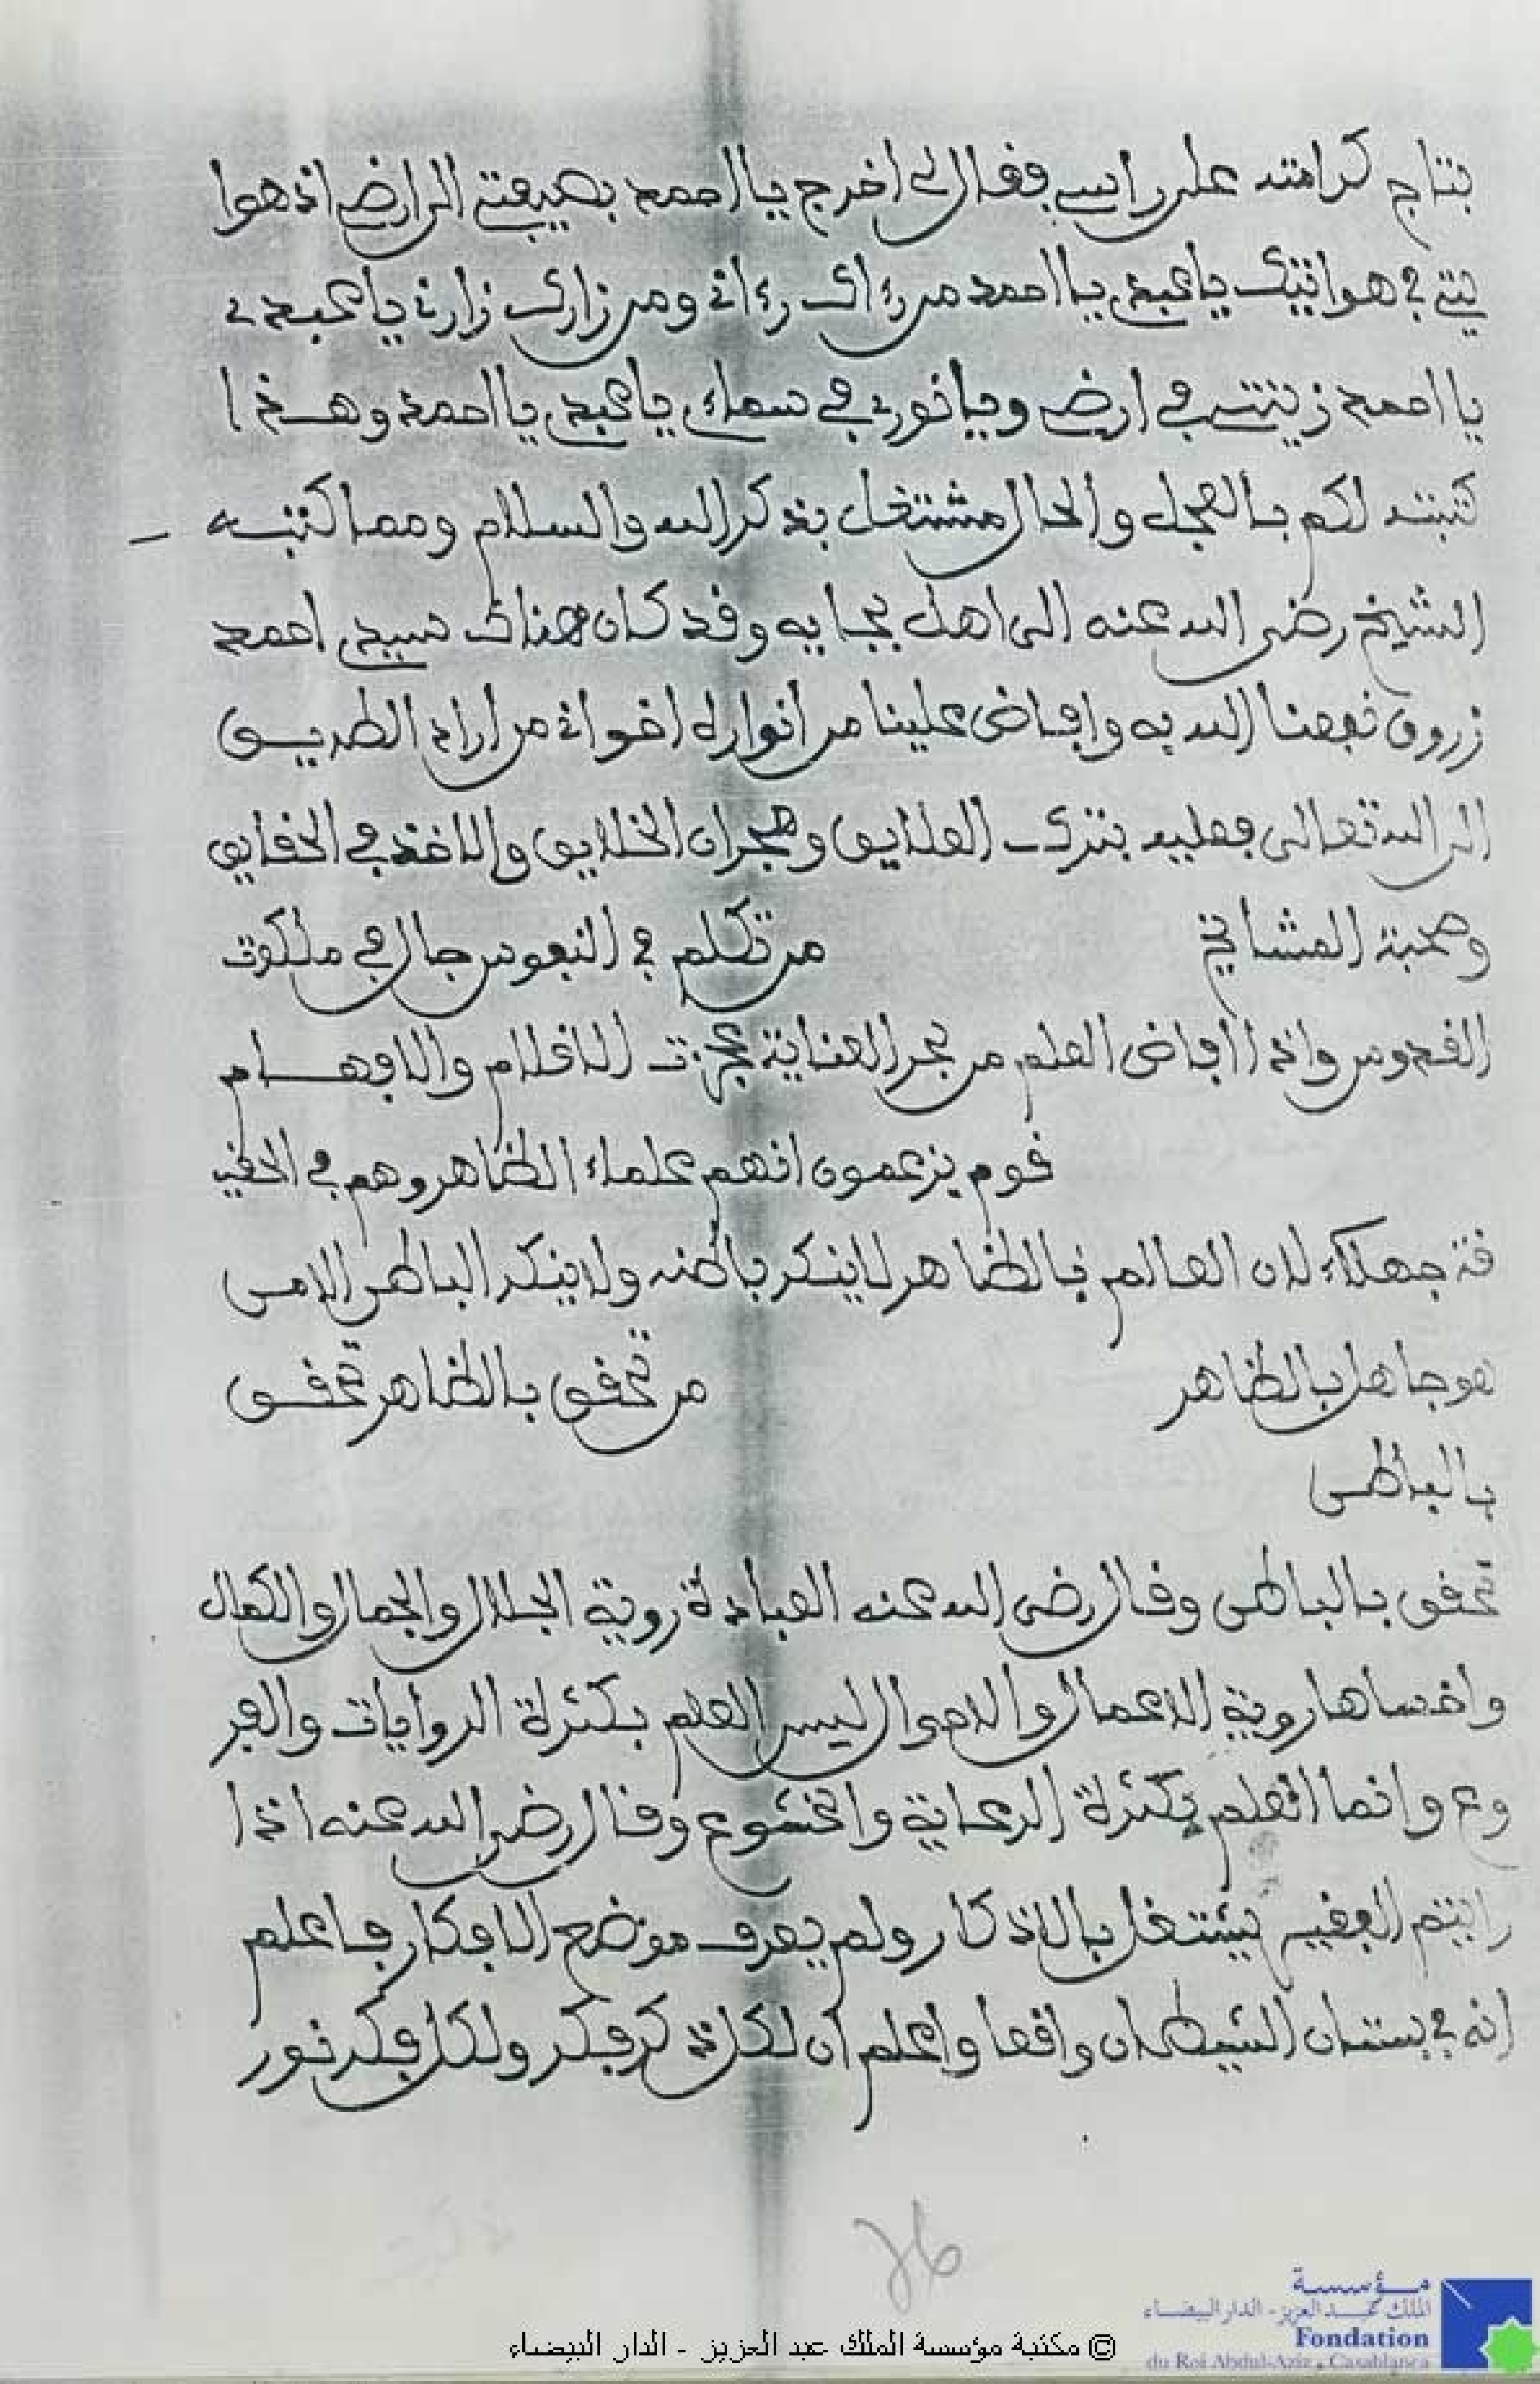 بتاج كرامته على راسي فقال لي اخرج يا احمد بصيفتي الى ارضي اذ هوا
يتي في هوانيتك يا عبدي يا احمد من رءاك رءاني ومن زارك زارني يا عبدي
يا احمد زينتي في ارضي ويا نوري في سماءي يا عبدي يا احمد وهذا
كتبته لكم بالعجل والحال مشتغل بذكر الله والسلام ومما كتبه
الشيخ رضي الله عنه الى اهل بجايه وقد كان هناك سيدي احمد
زروق نفعنا الله به وافاض علينا من انواره اخواني من اراد الطريق
الى الله تعالى فعليه بترك العلايق وهجران الخلايق والاخذ في الحقايق
وصحبة المشايخ من تكلم في النفوس جال في ملكوت
القدوس واذا افاض العلم من بحر العناية عجزت الاقلام والافهام
قوم يزعمون انهم علماء الظاهر وهم في الحقي
قة جهلاء لان العالم بالظاهر لا ينكر باطنه ولا ينكر الباطن الا من
هو جاهل بالظاهر من تحقق بالظاهر تحقق
بالباطن
تحقق بالباطن وقال رضي الله عنه العبادة روية الجلال والجمال والكمال
واخساها روية الاعمال والاحوال ليس العلم بكثرة الروايات والفر
وع وانما العلم بكثرة الرعاية والخشوع وقال رضي الله عنه اذا
رايتم الفقير يشتغل بالاذكار ولم يعرف موضع الافكار فاعلم
انه في بستان الشيطان واقعا واعلم ان لكل ذكر فكر ولكل فكر نور
76
مؤسسة
الملك عبد العزيز - الدار البيضاء
Fondation
du Roi Abdul-Aziz . Casablanca
© مكتبة مؤسسة الملك عبد العزيز - الدار البيضاء